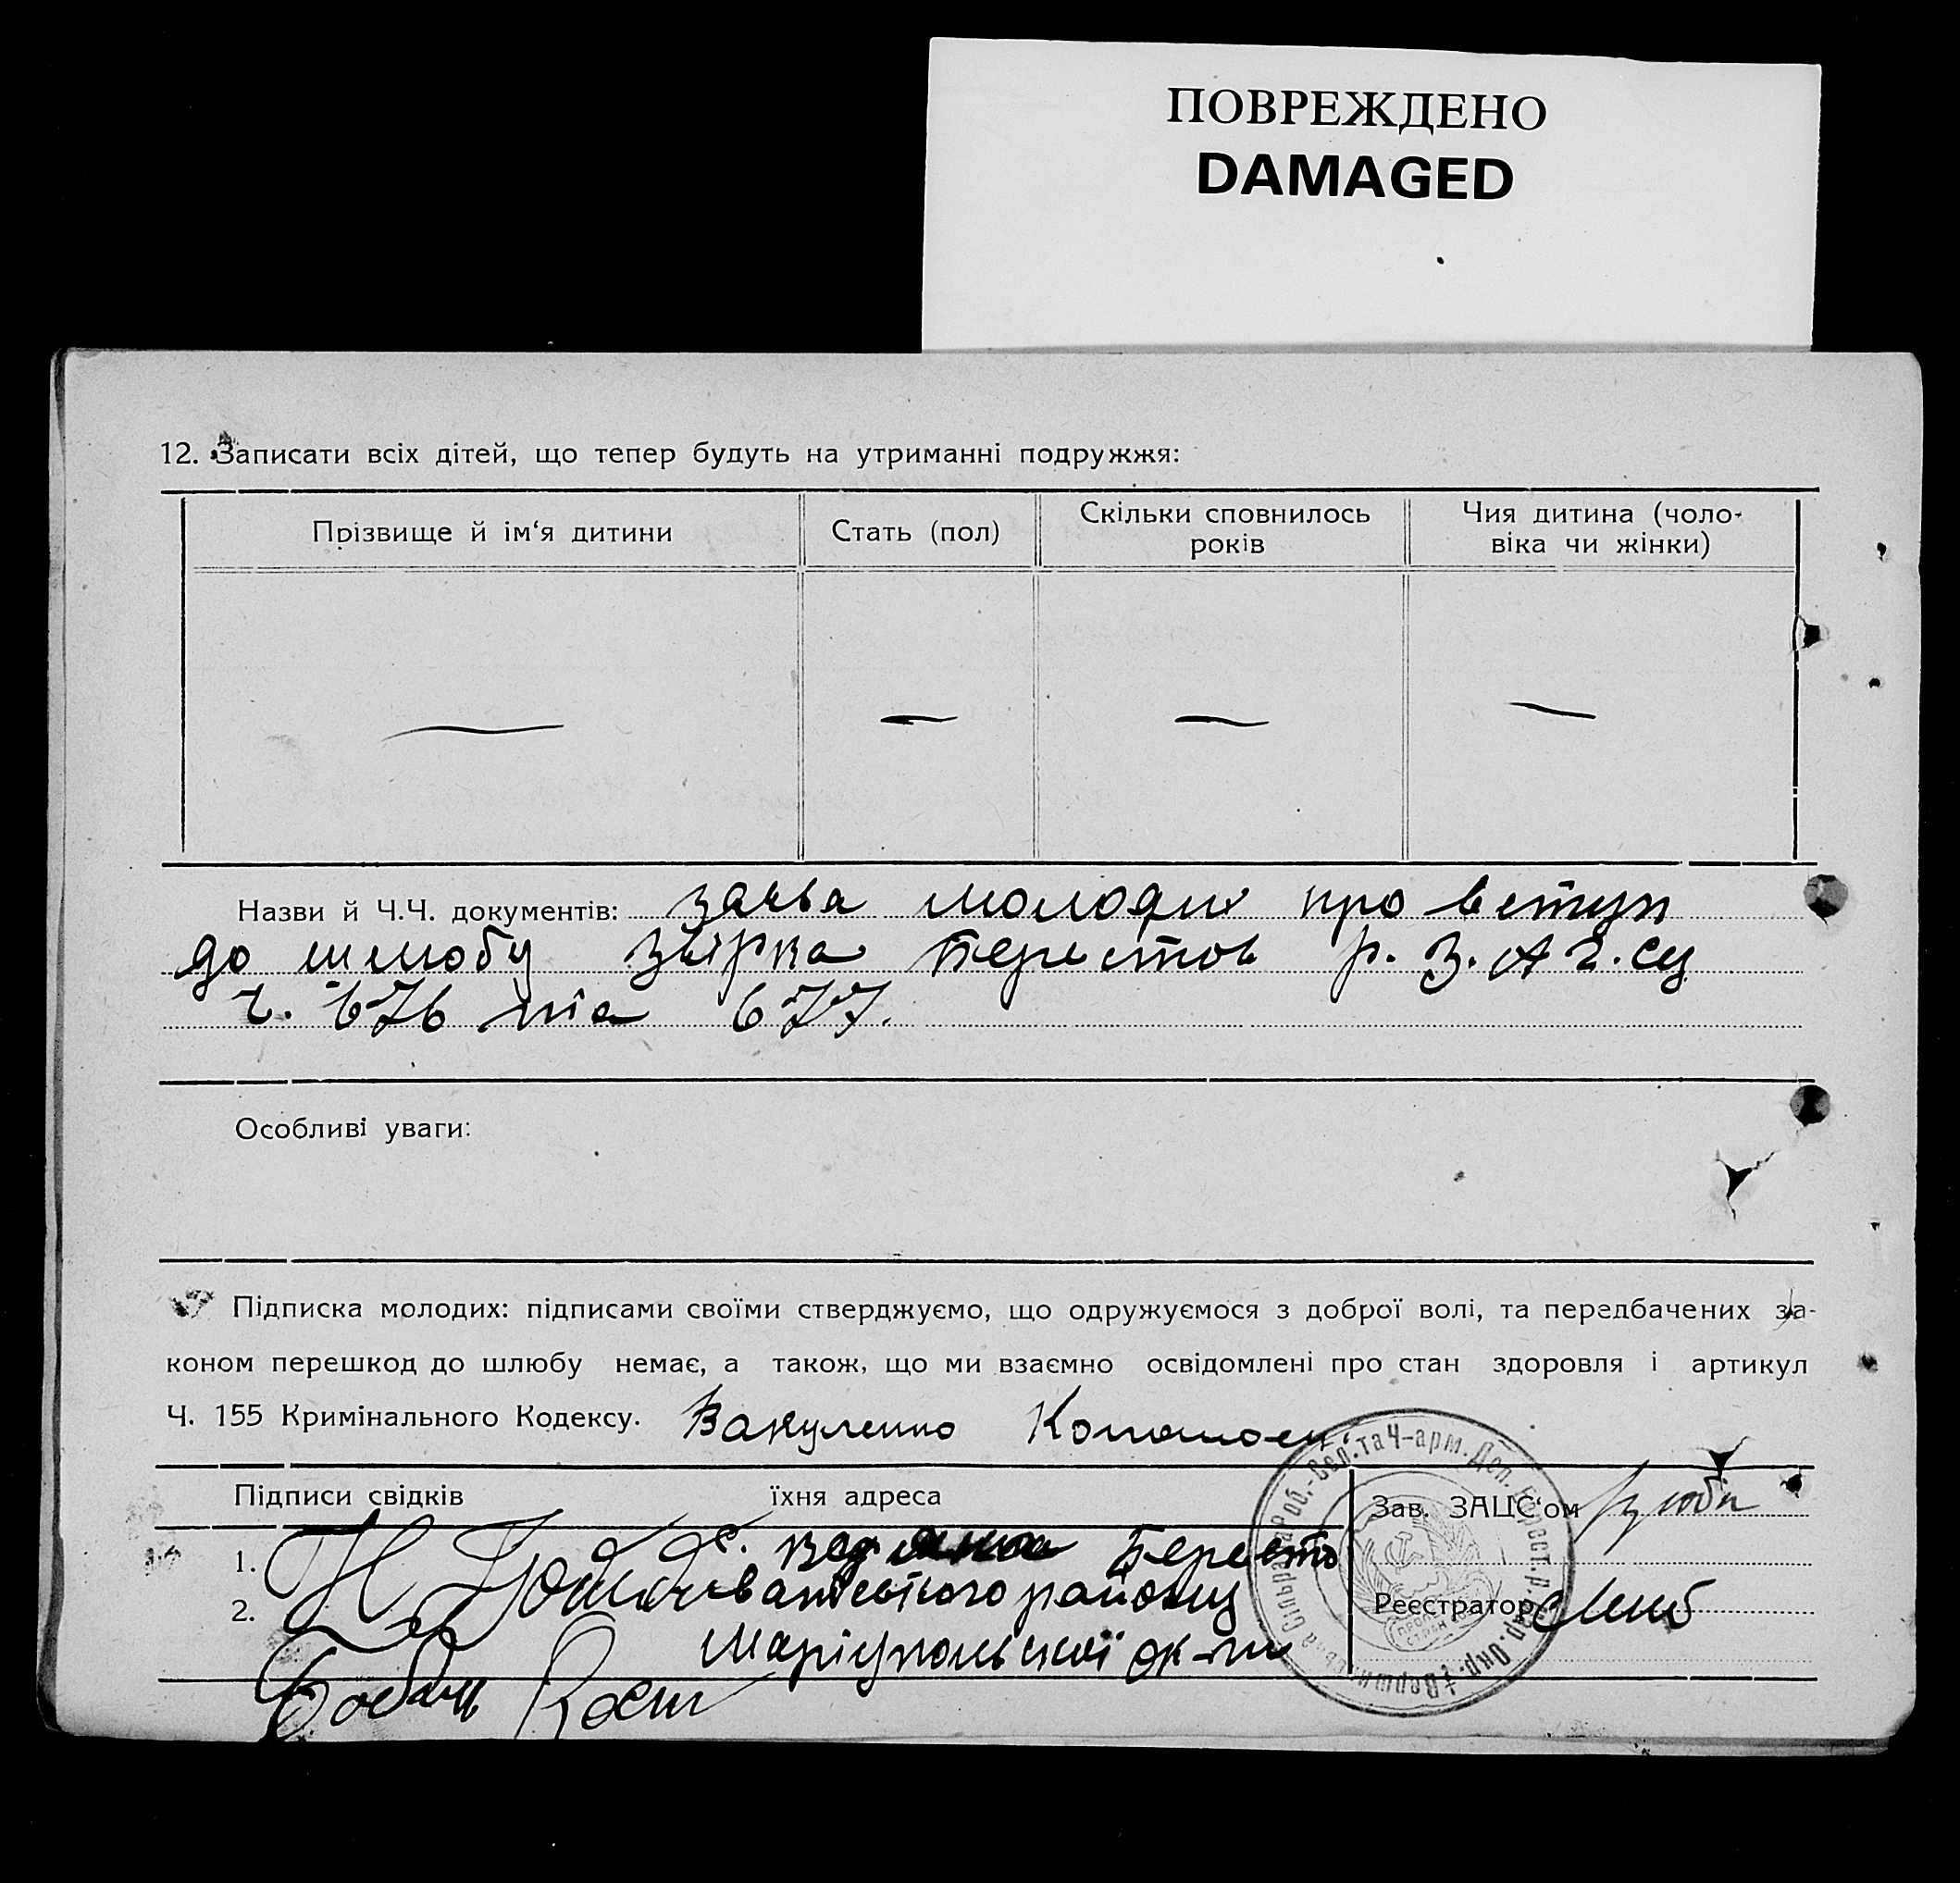 ПОВРЕЖДЕНО
DAMAGED
12. Записати всіх дітей, що тепер будуть на утриманні подружжя:
Прізвище й ім‘я дитини
Стать (пол)
Скільки сповнилось
років
Чия дитина (чоло-
віка чи жінки)
Назви й Ч.Ч. документів: заява молодих про вступ
до шлюбу звірка Берестов р. З.А Г.су
ч. 676 та 677.
Особливі уваги:
Підписка молодих: підписами своїми стверджуємо, що одружуємося з доброї волі, та передбачених за-
коном перешкод до шлюбу немає, а також, що ми взаємно освідомлені про стан здоровля і артикул
Ч. 155 Кримінального Кодексу. Вакуленко
Підписи свідків їхня адреса
Зав. ЗАЦС‘ом
1. Бересто
2. ватського району
Реєстратор
Маріупольської ок-ги